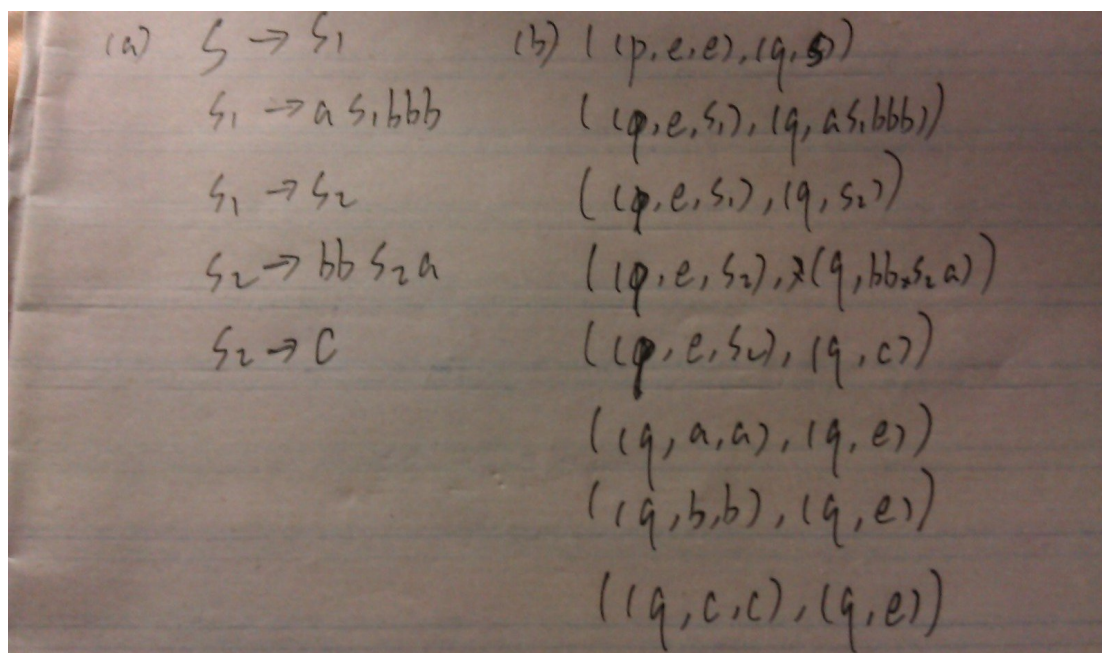 (a) S → S1
S1 → aS1bbb
S1 → S2
S2 → bbS2a
S2 → c
(b) ((p,e,e),(q,S))
((q,e,S1),(q,aS1bbb))
((q,e,S1),(q,S2))
((q,e,S2),(q,bbS2a))
((q,e,S2),(q,c))
((q,a,a),(q,e))
((q,b,b),(q,e))
((q,c,c),(q,e))